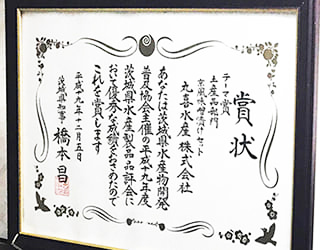 賞状
テーマ賞
土産品部門
京風味噌漬けセット
丸喜水産 株式会社
あなたは茨城県水産物開発
普及協会主催の平成十九年度
茨城県水産製品品評会に
おいて優秀な成績をおさめたので
これを賞します
平成十九年十二月五日
茨城県知事 橋本昌